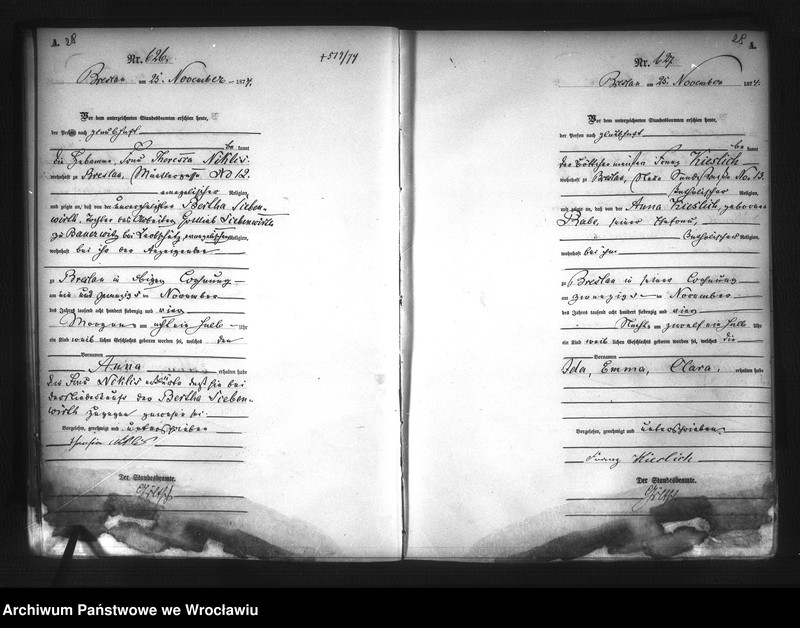 A. 28
Nr. 626.
+ 519/74
Breslau am 25. November 1874.
Vor dem unterzeichneten Standesbeamten erschien heute,
der Person nach glaubhaft
be kannt
die Hebamme, Frau Theresia Niklis
wohnhaft zu Breslau, No 12.
evangelischer Religion,
und zeigte an, daß von der unverehelichten Bertha Sieben-
wirth, Tochter des Gottlieb Siebenwirth
zu Bauerwitz bei Leobschütz, evangelischer Religion,
wohnhaft bei ihr der Anzeigenden
zu Breslau in obiger Wohnung
am ein und zwanzigsten November
des Jahres tausend acht hundert siebenzig und vier
Morgens um acht ein halb Uhr
ein Kind weib lichen Geschlechts geboren worden sei, welches den
Vornamen
Anna erhalten habe
Die Frau Niklis erklärte daß sie bei
der Niederkunft der Bertha Sieben-
wirth zugegen gewesen sei
Vorgelesen, genehmigt und unterschrieben
Der Standesbeamte.
28 A.
Nr. 627.
Breslau am 25. November 1874.
Vor dem unterzeichneten Standesbeamten erschien heute,
der Person nach glaubhaft
be kannt
der Böttchermeister Franz Kieslich
wohnhaft zu Breslau, Neue No 13.
katholischer Religion,
und zeigte an, daß von der Anna Kieslich, geborenen
Babe, seiner Ehefrau,
katholischer Religion,
wohnhaft bei ihm
zu Breslau in seiner Wohnung
am zwanzigsten November
des Jahres tausend acht hundert siebenzig und vier
Nachts um zwölf ein halb Uhr
ein Kind weib lichen Geschlechts geboren worden sei, welches die
Vornamen
Ida, Emma, Clara, erhalten habe
Vorgelesen, genehmigt und unterschrieben
Franz Kieslich
Der Standesbeamte.
Archiwum Państwowe we Wrocławiu